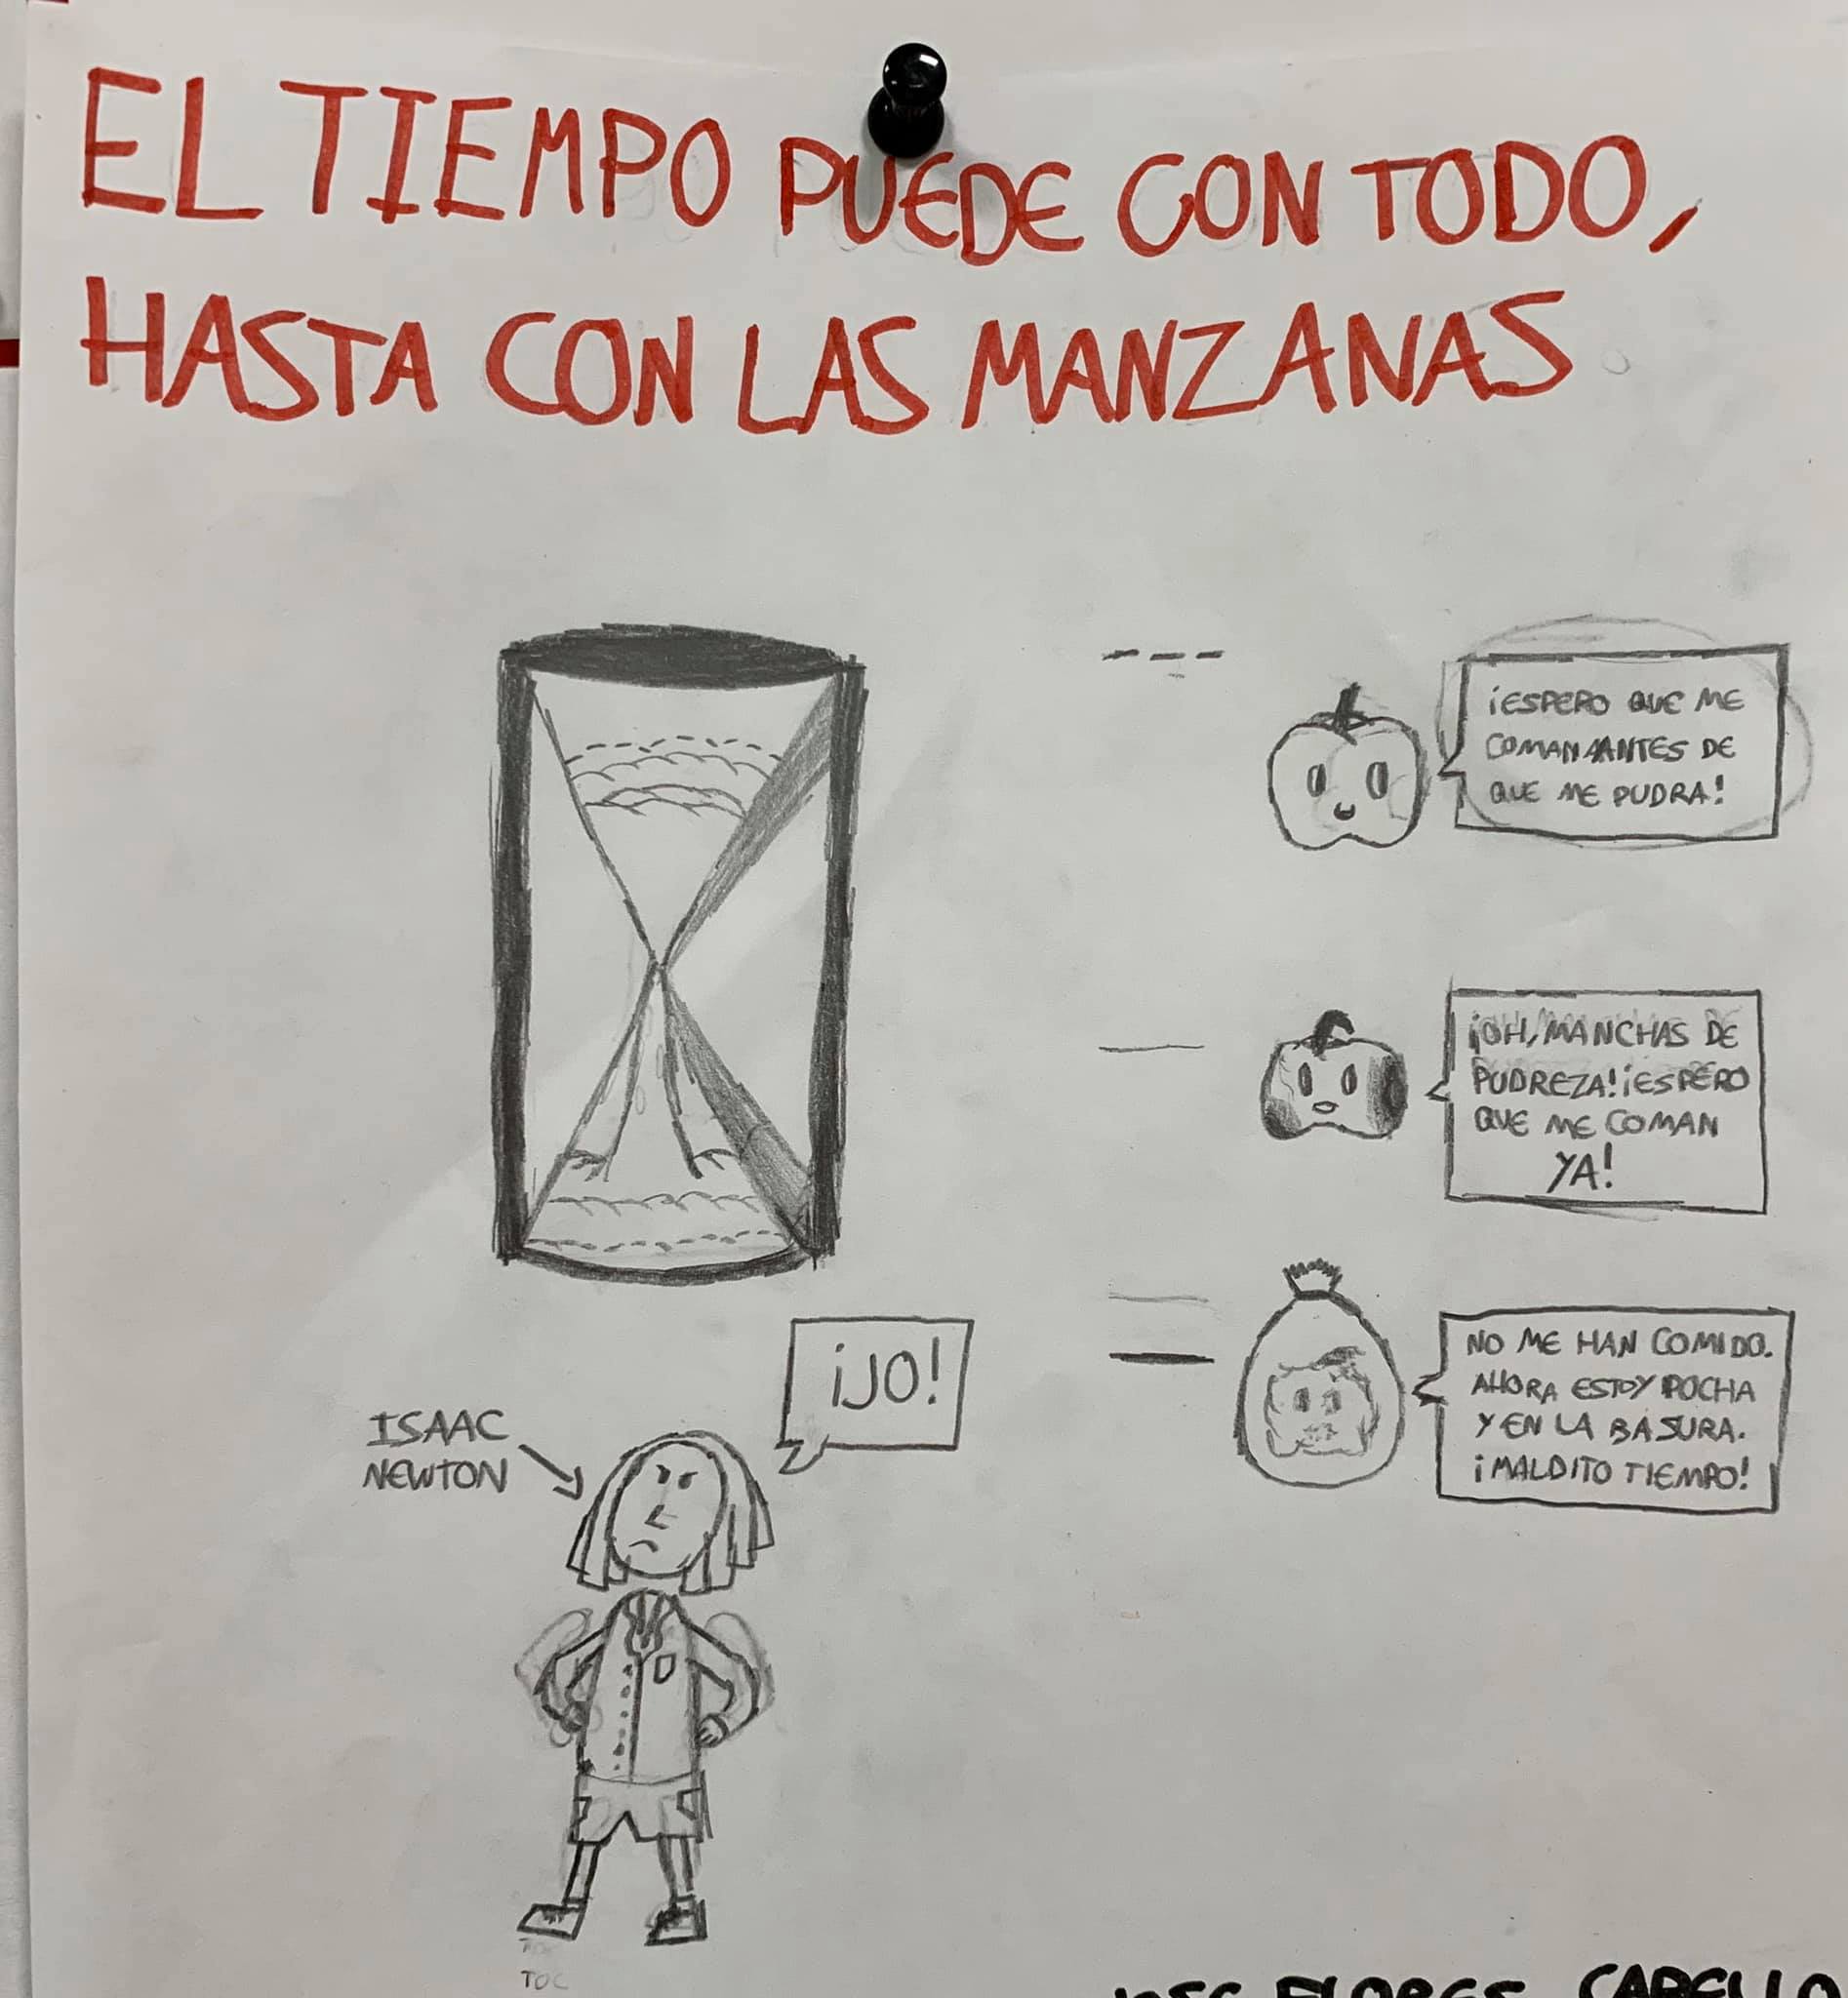 EL TIEMPO PUEDE CON TODO,
HASTA CON LAS MANZANAS
¡ESPERO QUE ME
COMAN ANTES DE
QUE ME PUDRA!
¡OH, MANCHAS DE
PUDREZA! ¡ESPERO
QUE ME COMAN
YA!
NO ME HAN COMIDO.
AHORA ESTOY POCHA
Y EN LA BASURA.
¡MALDITO TIEMPO!
¡JO!
ISAAC
NEWTON
TOC
FLORES CABELLO